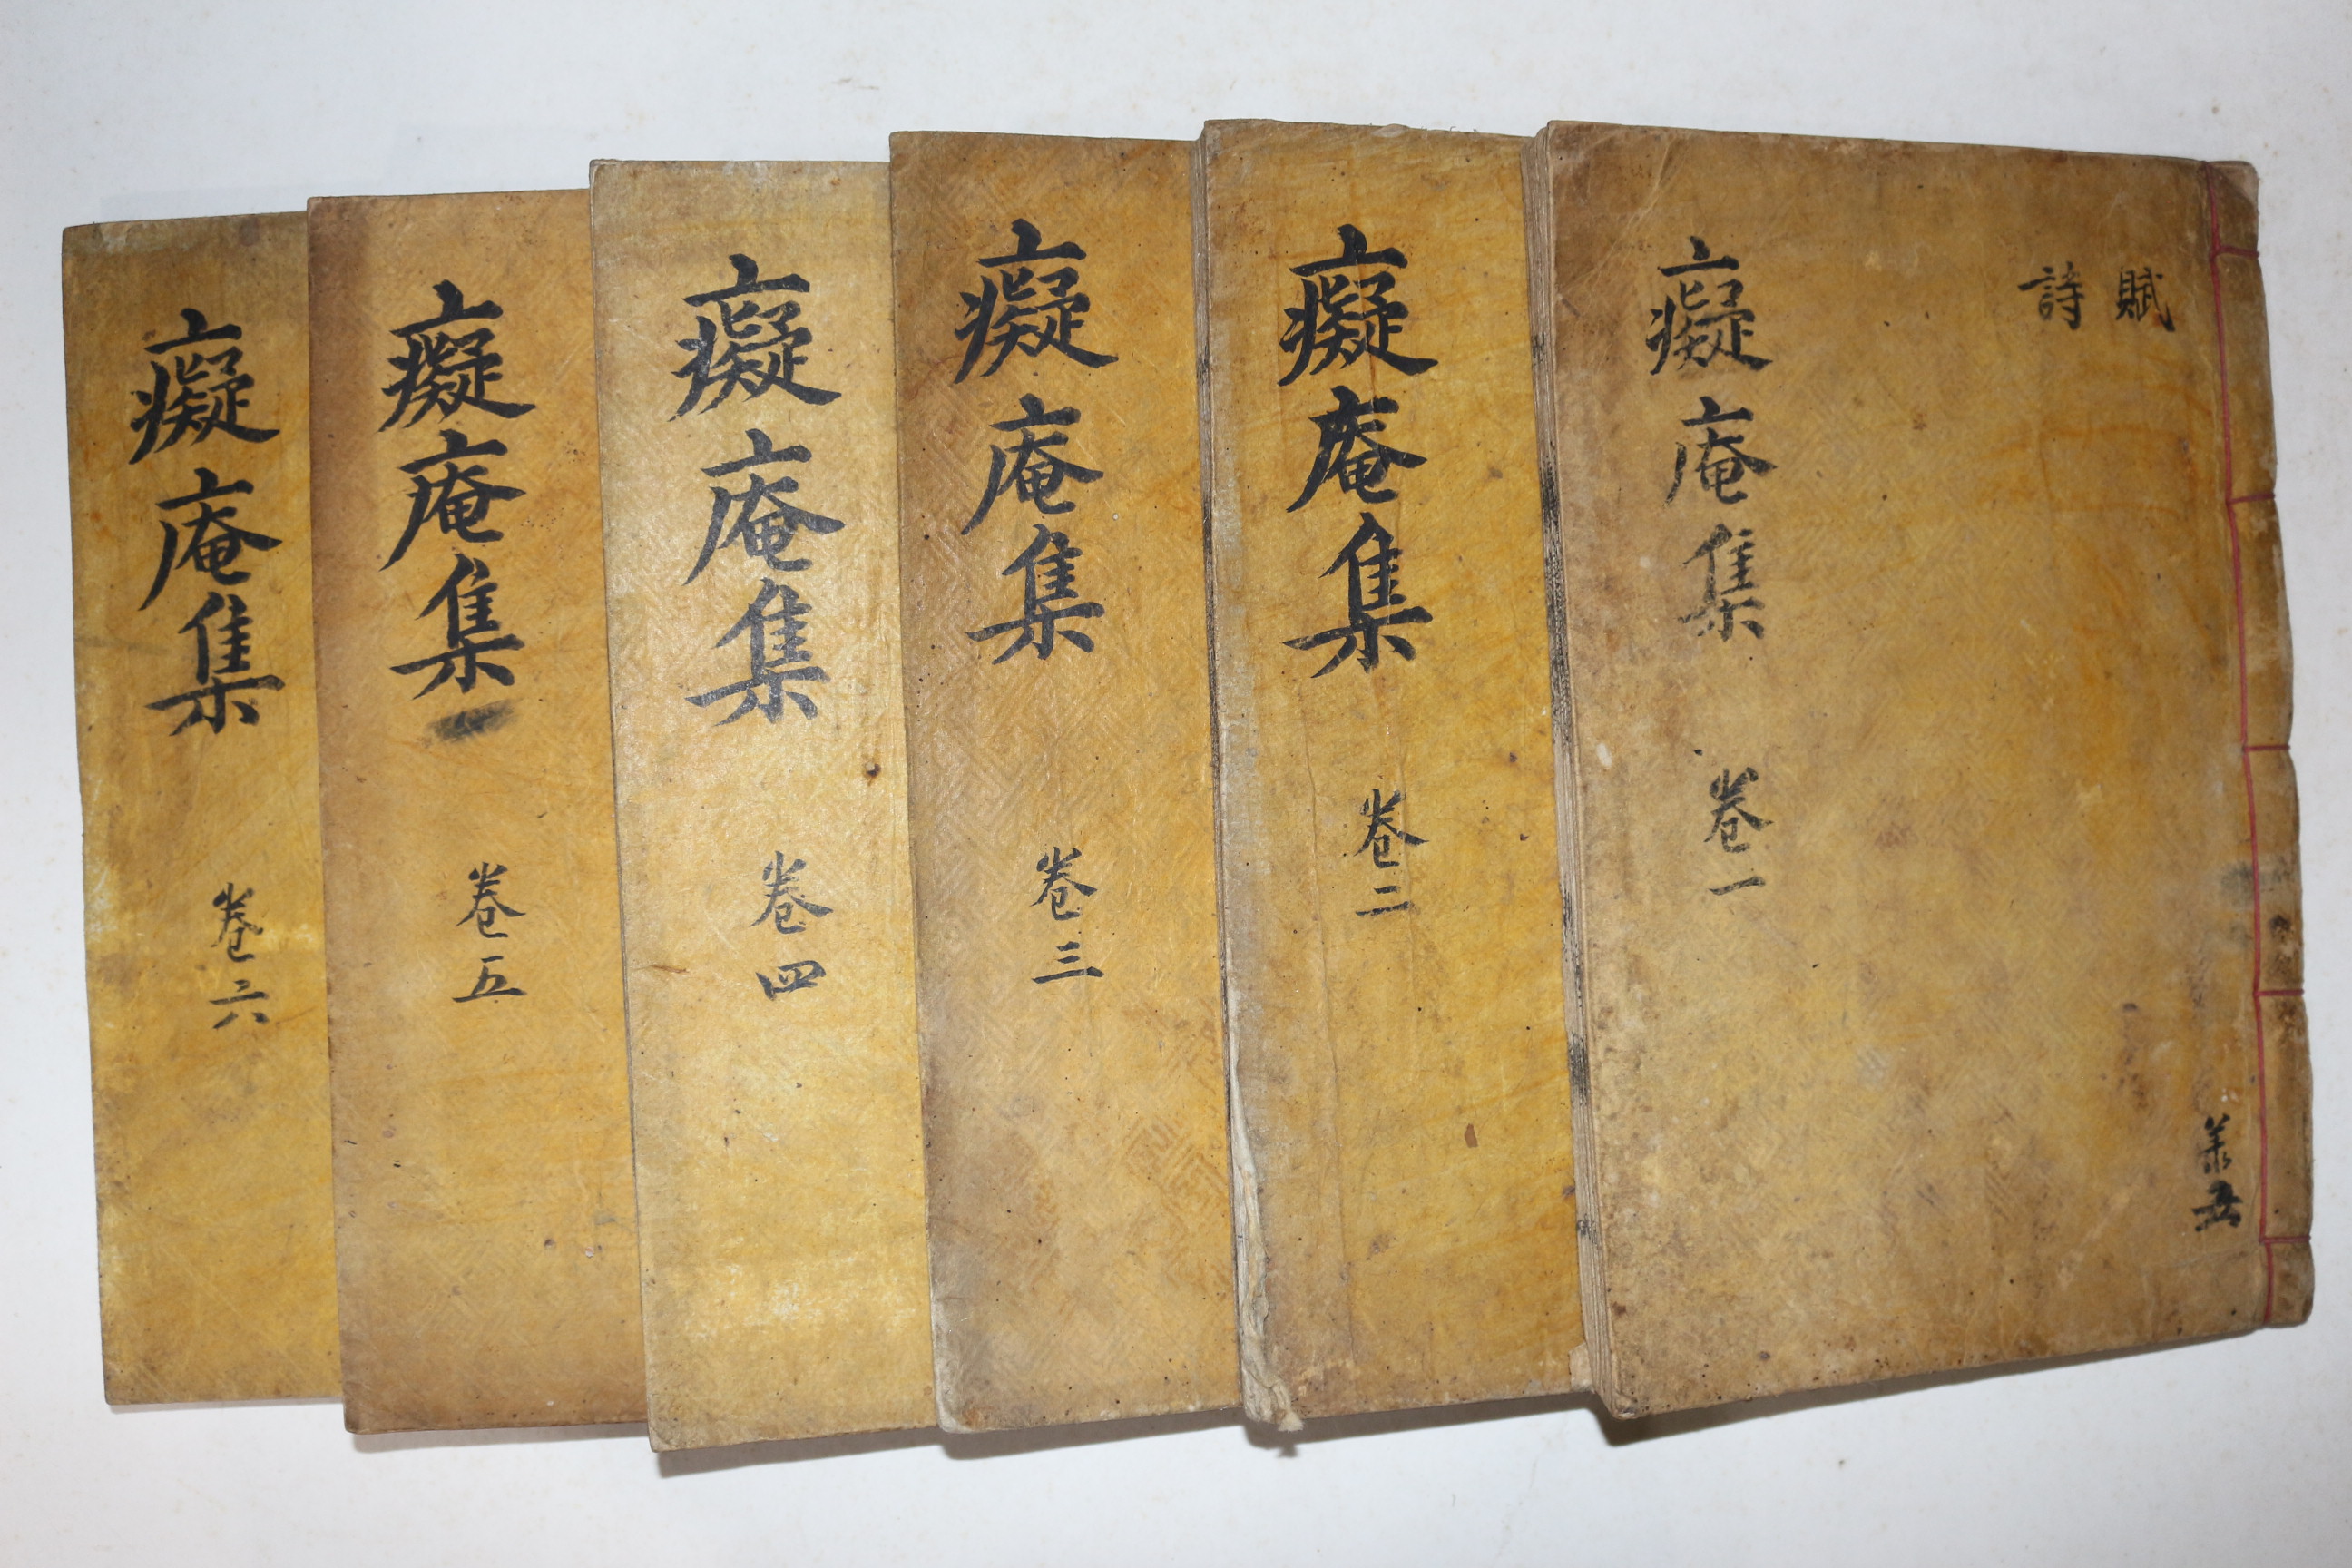 賦
詩
癡庵集 卷一
癡庵集 卷二
癡庵集 卷三
癡庵集 卷四
癡庵集 卷五
癡庵集 卷六